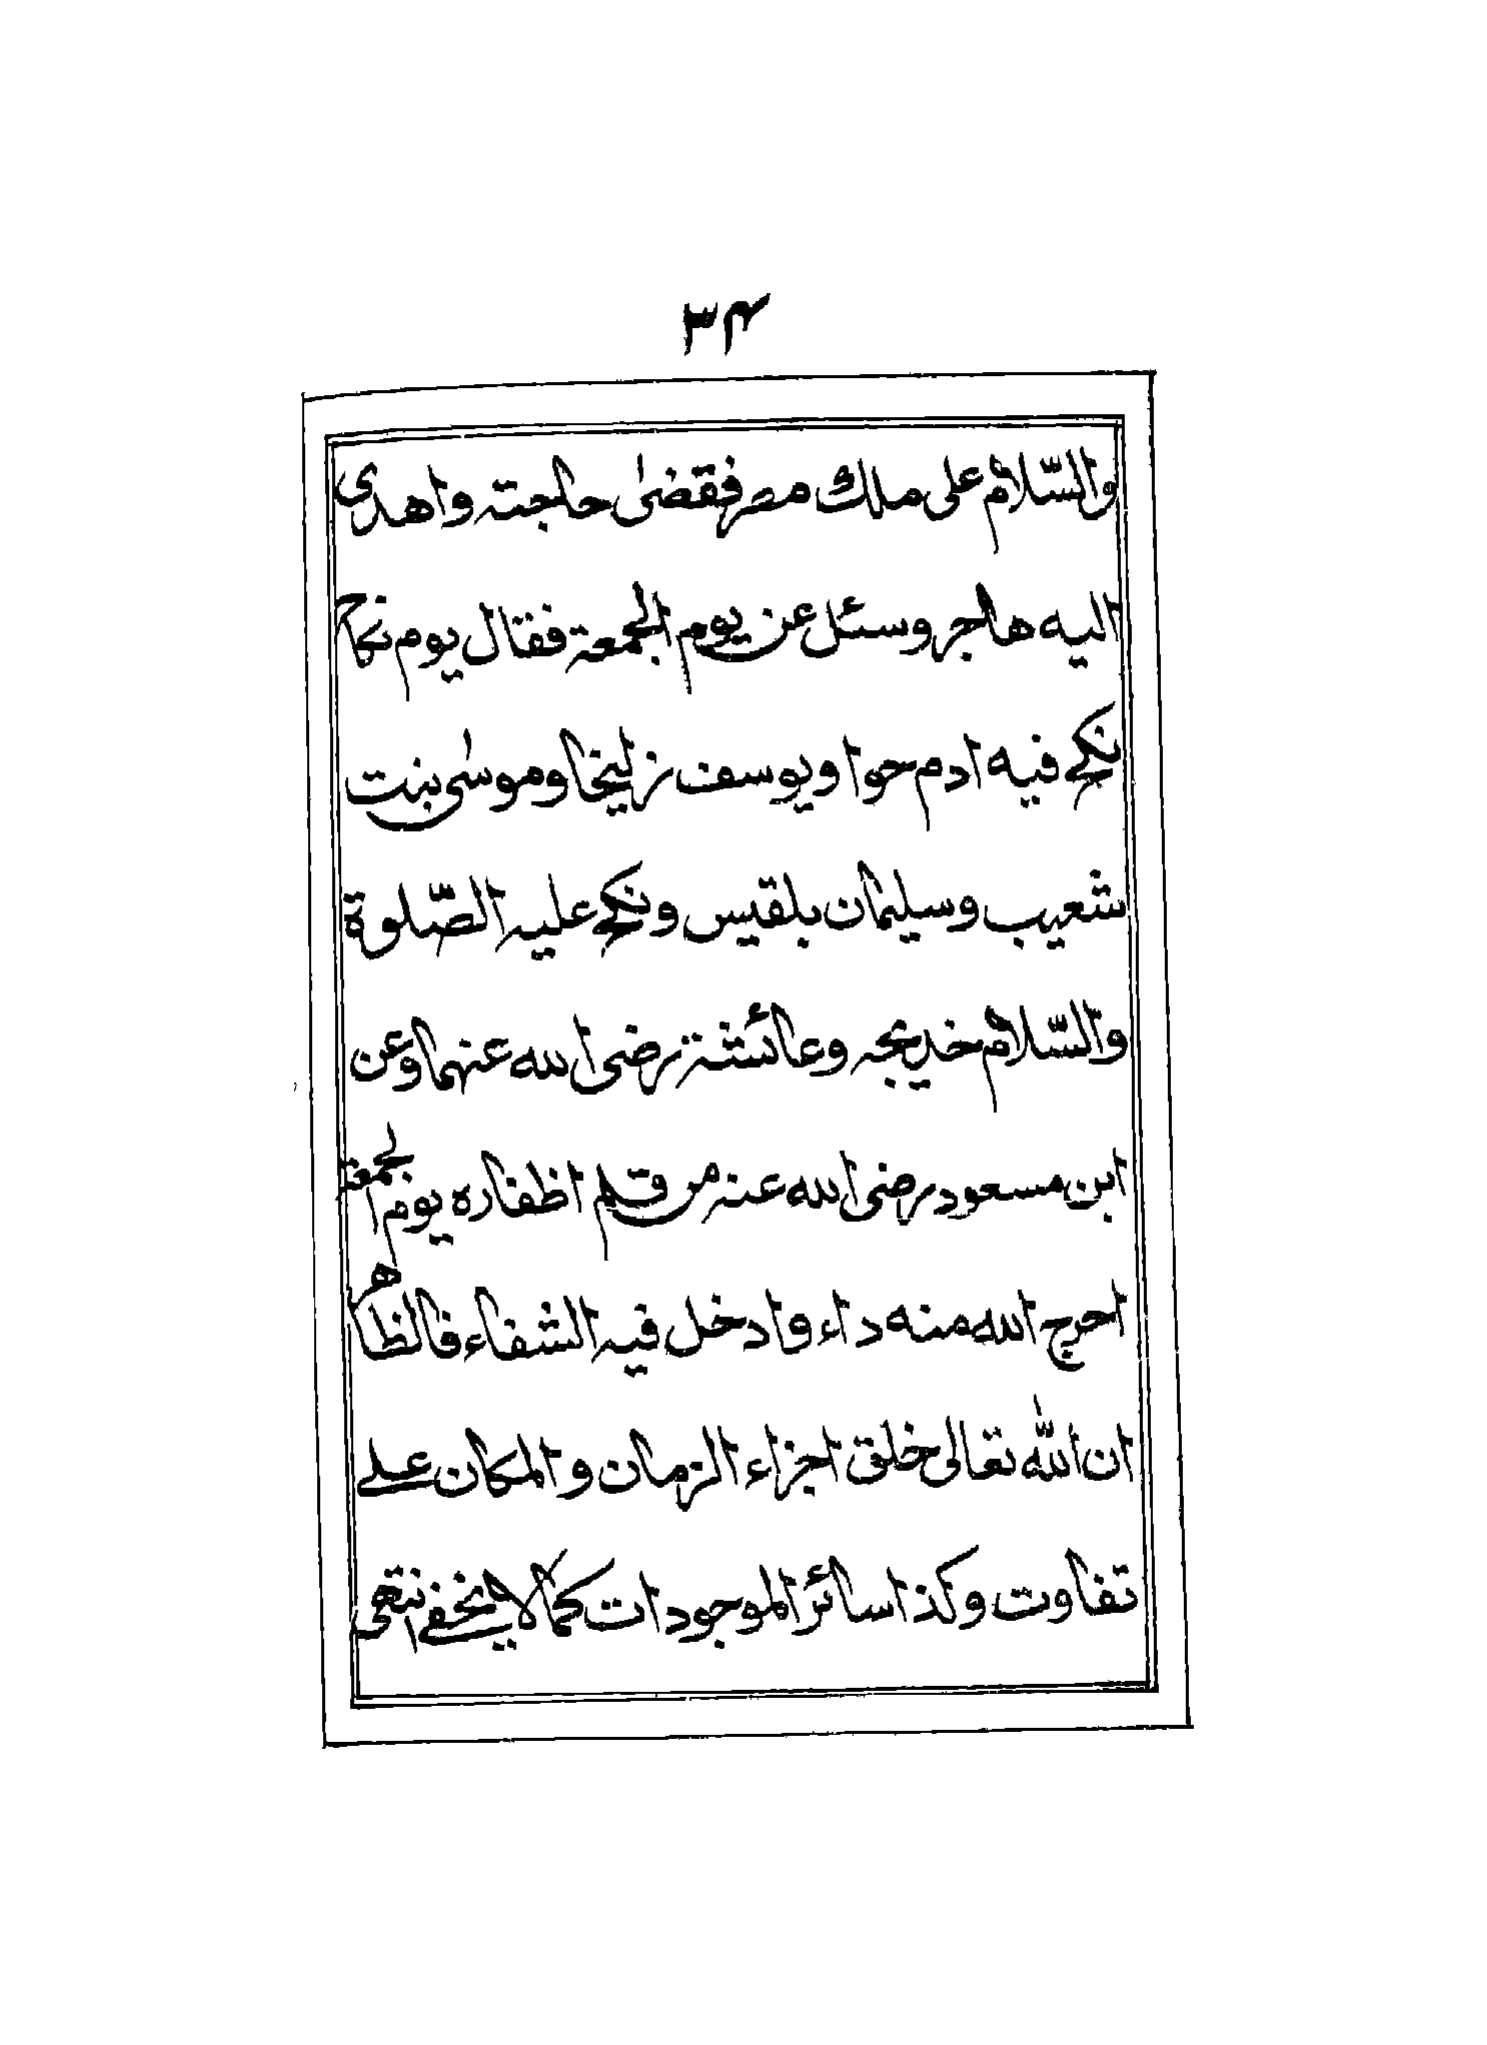 ۳۴
والسّلام على ملك مصر فقضىٰ حاجته واهدى
اليه هاجر وسئل عن يوم الجمعة فقال يوم نكاح
نكح فيه ادم حوا ويوسف زليخا وموسىٰ بنت
شعيب وسليمان بلقيس ونكح عليه الصّلوة
والسّلام خديجه وعائشة رضى الله عنهما وعن
ابن مسعود رضى الله عنه من قلم اظفاره يوم الجمعة
اخرج الله منه داء وادخل فيه الشفاء فالظاهر
ان اللّٰه تعالى خلق اجزاء الزمان والمكان على
تفاوت وكذا سائر الموجودات كمالا يخفى انتهى